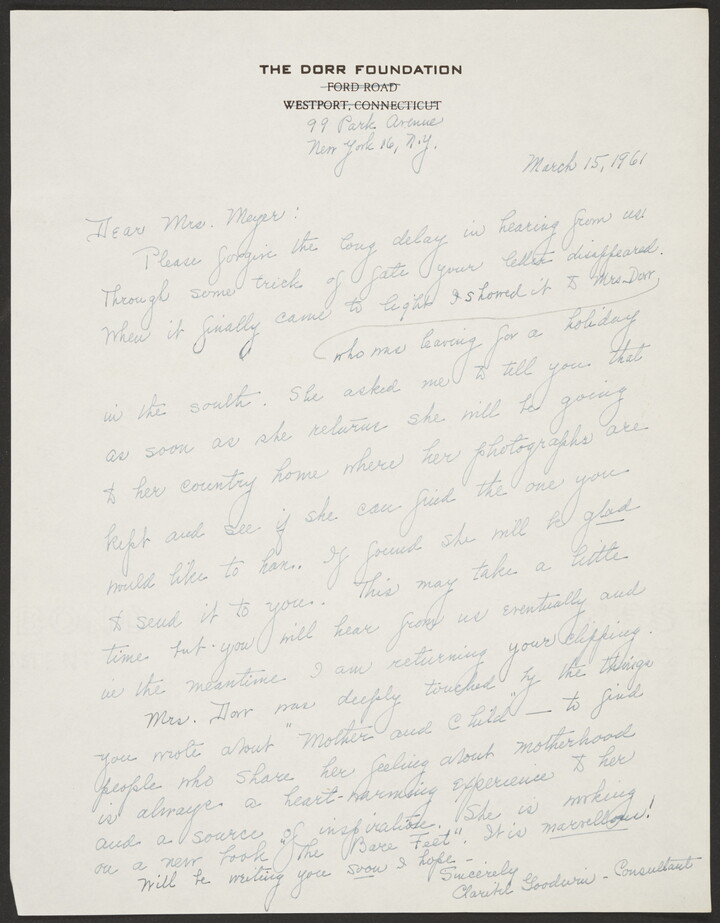 THE DORR FOUNDATION
FORD ROAD
WESTPORT, CONNECTICUT
99 Park Avenue
New York 16, N.Y.
March 15, 1961
Dear Mrs. Meyer:
Please forgive the long delay in hearing from us.
Through some trick of fate your letter disappeared.
When it finally came to light I showed it to Mrs. Dorr
who was leaving for a holiday
in the south. She asked me to tell you that
as soon as she returns she will be going
to her country home where her photographs are
kept and see if she can find the one you
would like to have. If found she will be glad
to send it to you. This may take a little
time but you will hear from us eventually and
in the meantime I am returning your clipping.
Mrs. Dorr was deeply touched by the things
you wrote about "Mother and Child" — to find
people who share her feeling about motherhood
is always a heart-warming experience to her
and a source of inspiration. She is working
on a new book "The Bare Feet". It is marvellous!
Will be writing you soon I hope -
Sincerely
Claribel Goodwin - Consultant